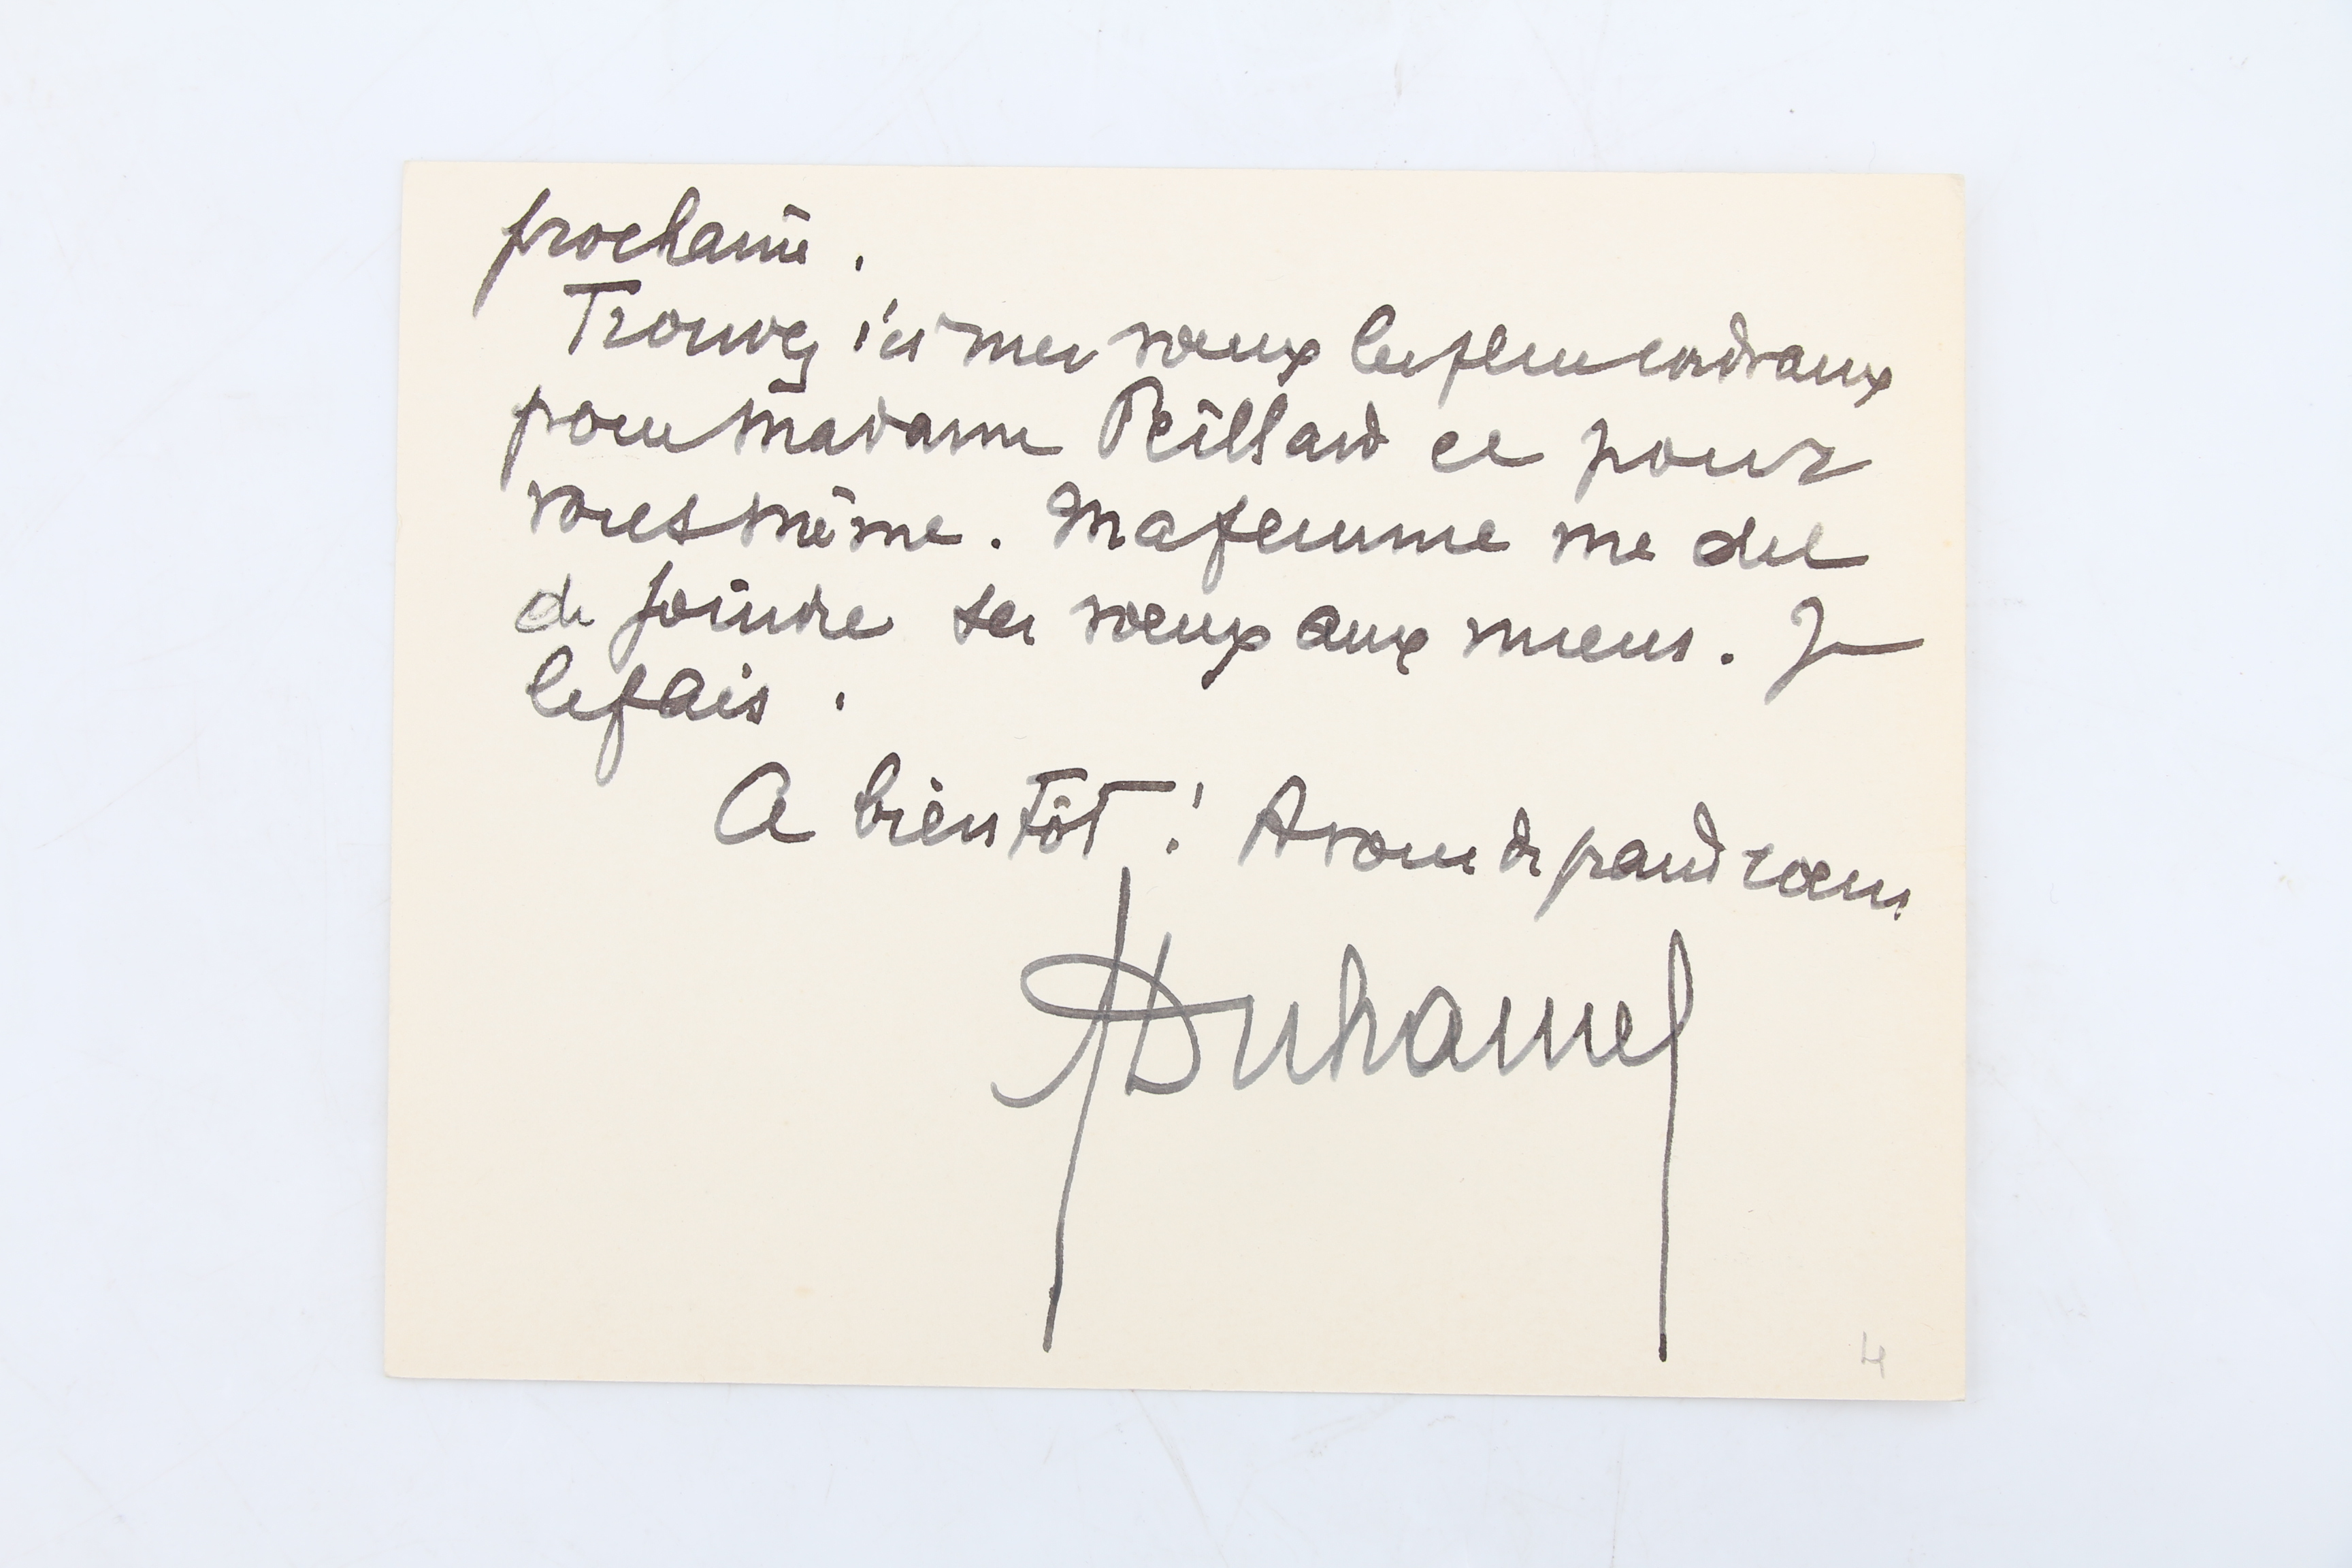 prochaine.
Trouvez ici mes vœux les plus cordiaux
pour madame Peillard et pour
vous même. Ma femme me dit
de joindre ses vœux aux miens. Je
le fais.
A bientôt ! A vous de grand cœur
Duhamel
4